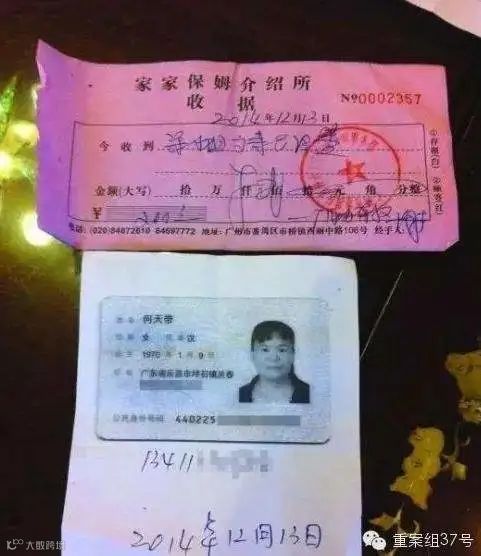 家家保姆介绍所
收据
№0002357
2014年12月13日
今收到
金额(大写) 拾 万 仟 佰 拾 元 角 分整
¥
电话: (020-84872610 84697772 地址: 广州市番禺区市桥镇西丽中路106号 经手人:
①存根(白) ②顾客(红)
姓名 何天带
性别 女 民族 汉
出生 1970年1月9日
公民身份号码 440225
13411
2014年12月13日
大数跨境
重案组37号